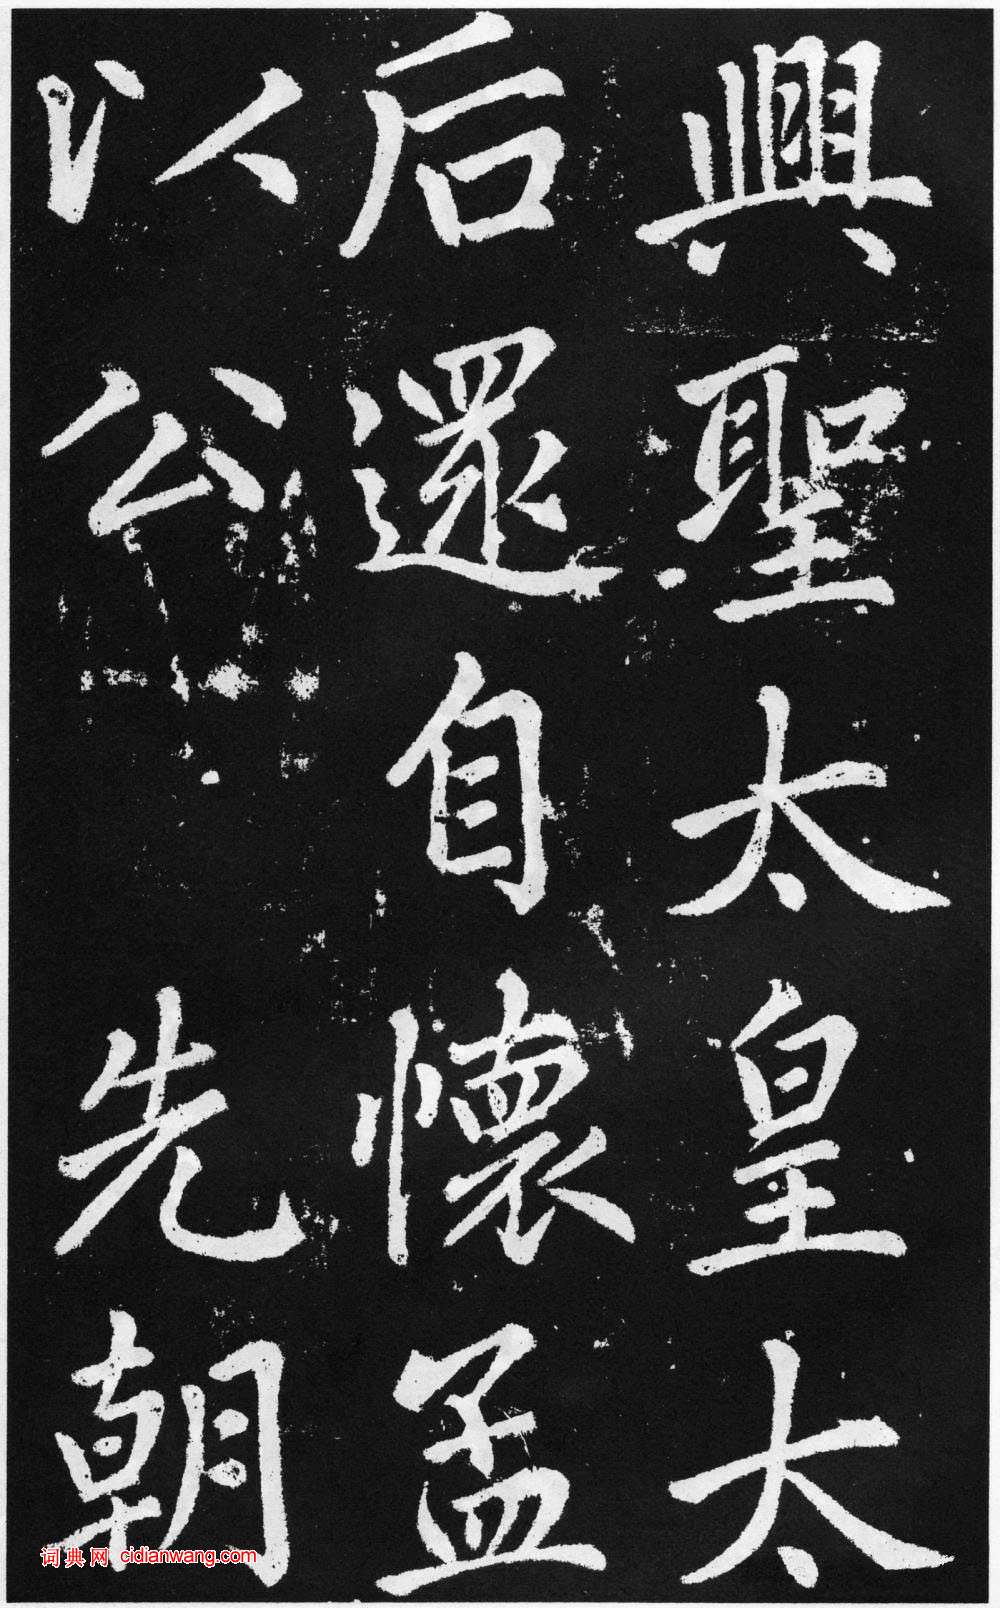 興聖太皇太
后還自懷孟
以公先朝
词典网 cidianwang.com